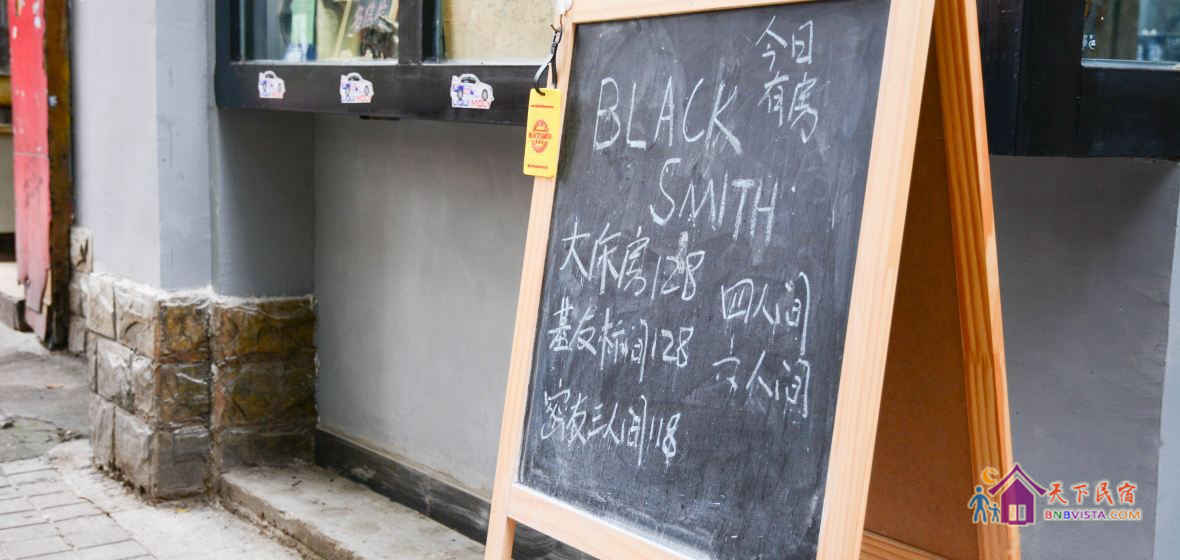 今日
有房
BLACK
SMITH
大床房128
基友标间128
密友三人间118
四人间
六人间
天下民宿
BNBVISTA.COM